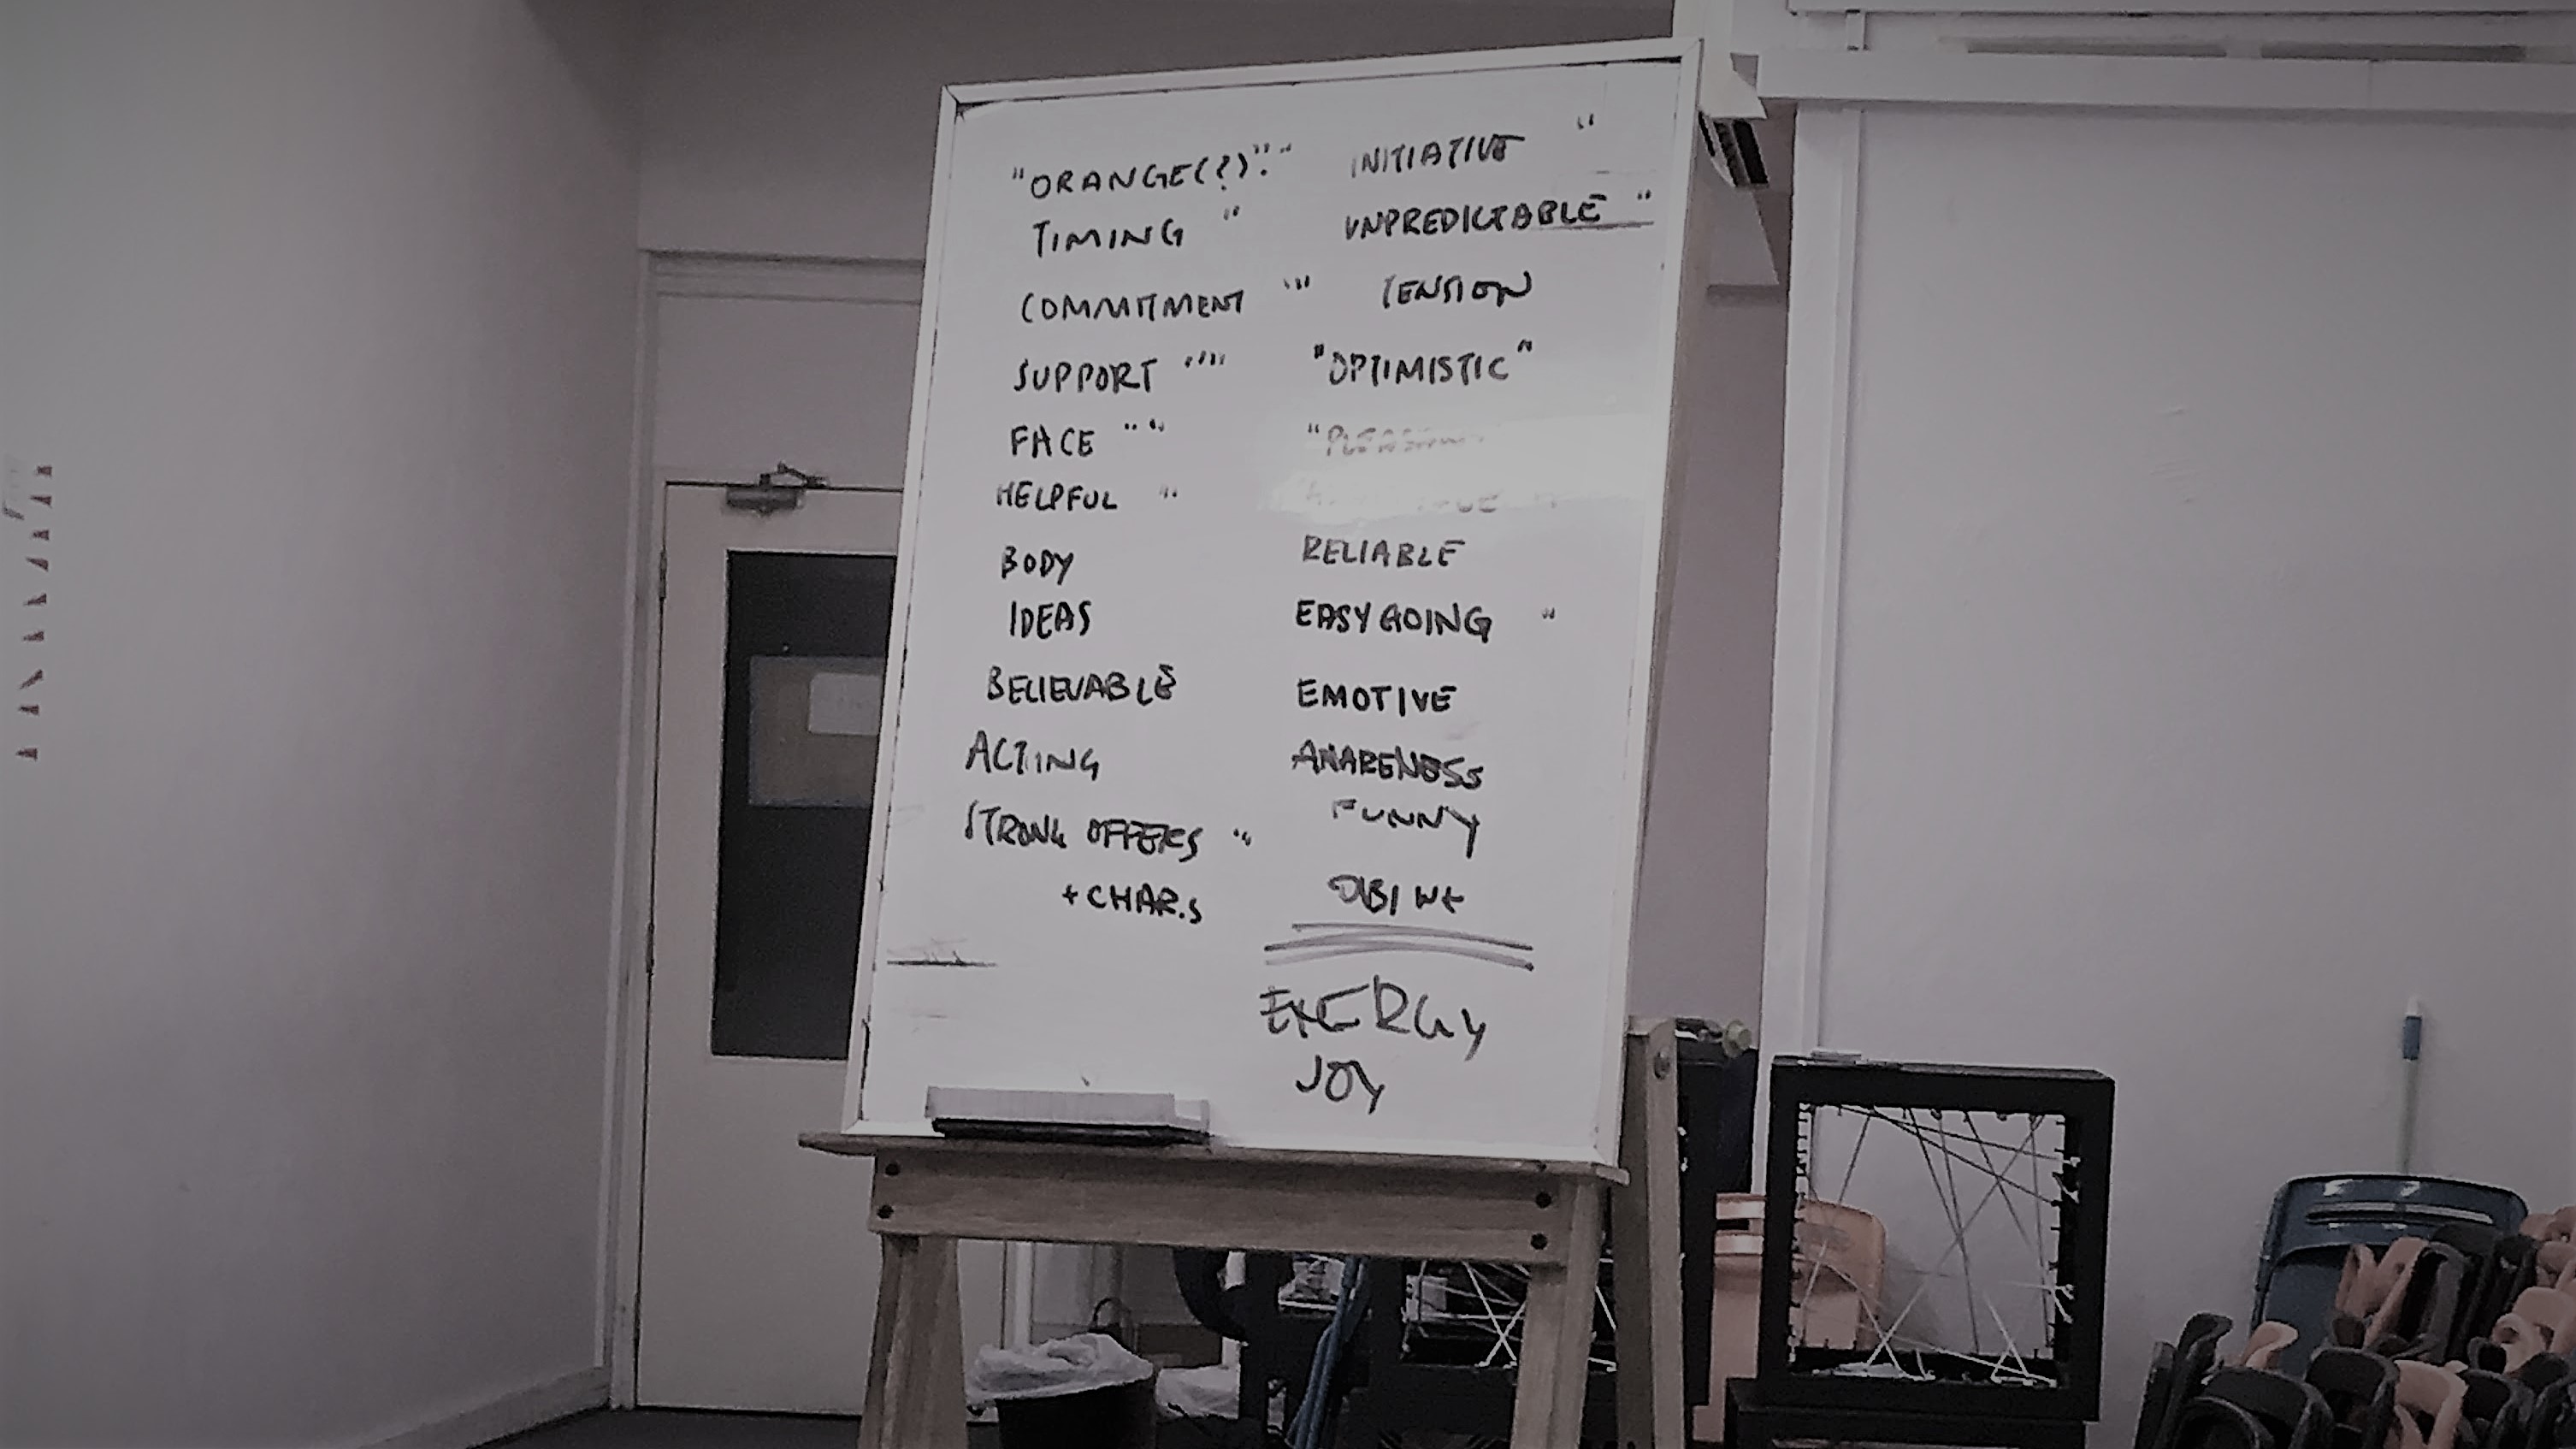 "ORANGE(?)".""
TIMING "
COMMITMENT '''
SUPPORT ''''
FACE " "
HELPFUL "
BODY
IDEAS
BELIEVABLE
ACTING
STRONG OFFERS "
+ CHAR.S
INITIATIVE "
UNPREDICTABLE "
TENSION
"OPTIMISTIC"
RELIABLE
EASYGOING "
EMOTIVE
AWARENESS
FUNNY
ENERGY
JOY